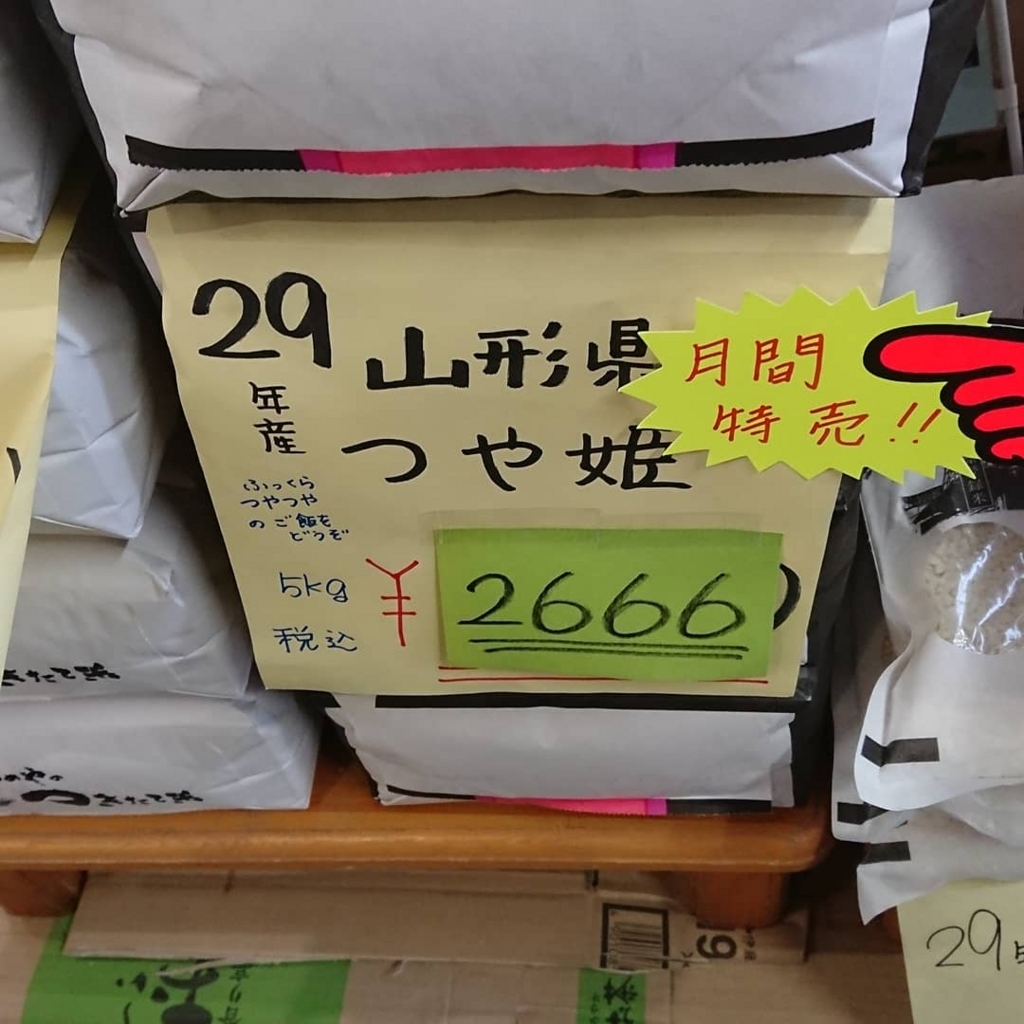 29
年産
山形県
つや姫
月間
特売!!
ふっくら
つやつや
のご飯を
どうぞ
5kg
税込
¥2666
29